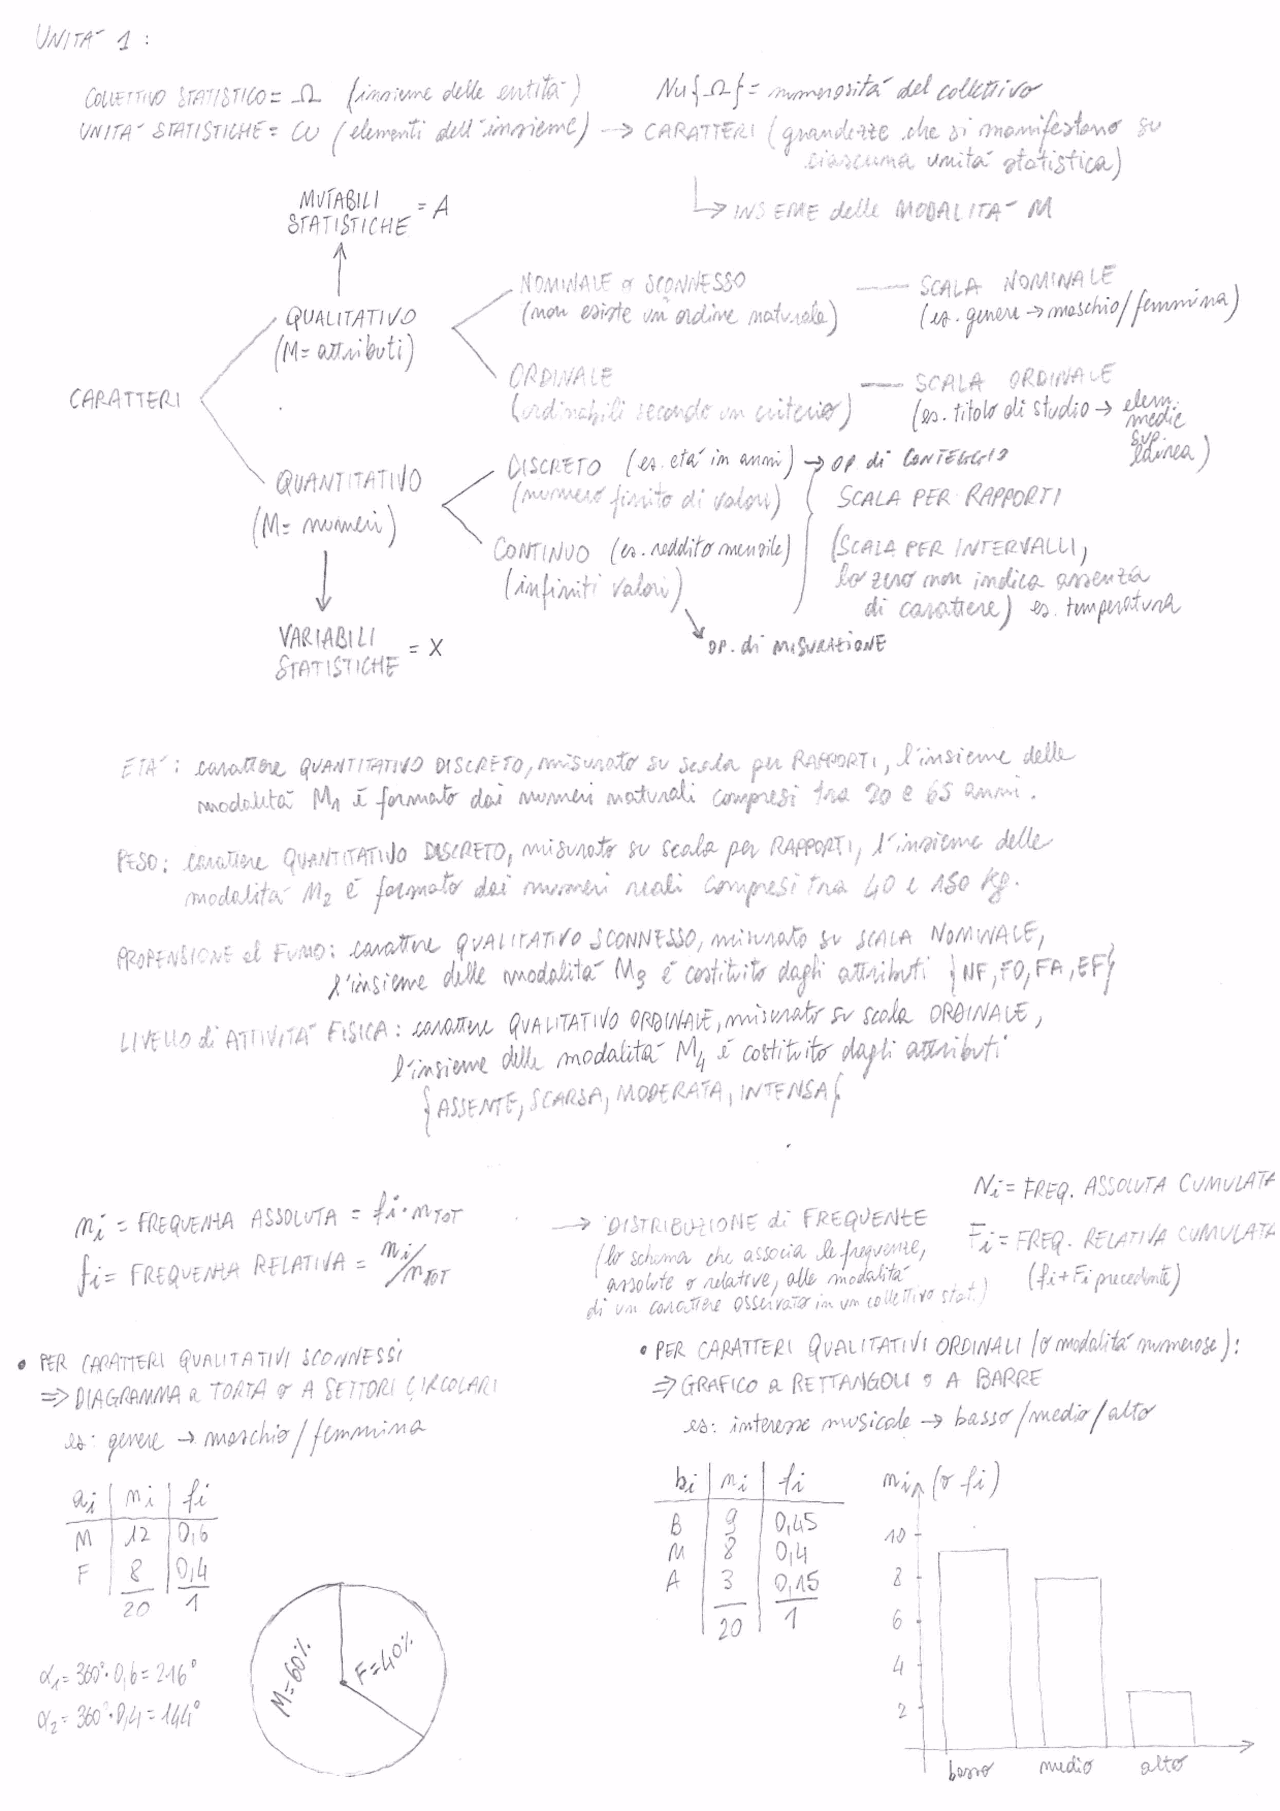 UNITÀ 1 :
COLLETTIVO STATISTICO = Ω (insieme delle entità)
Nu{Ω} = numerosità del collettivo
UNITÀ STATISTICHE = ω (elementi dell'insieme) → CARATTERI (grandezze che si manifestano su
ciascuna unità statistica)
↳ INSIEME delle MODALITÀ M
MUTABILI
STATISTICHE = A
QUALITATIVO
(M= attributi)
NOMINALE o SCONNESSO
(non esiste un ordine naturale)
— SCALA NOMINALE
(es. genere → maschio/femmina)
CARATTERI
ORDINALE
(ordinabili secondo un criterio)
— SCALA ORDINALE
(es. titolo di studio → elem.
medie
sup.
laurea)
QUANTITATIVO
(M= numeri)
DISCRETO (es. età in anni) → OP. di CONTEGGIO
(numero finito di valori)
SCALA PER RAPPORTI
CONTINUO (es. reddito mensile)
(infiniti valori)
(SCALA PER INTERVALLI,
lo zero non indica assenza
di carattere) es. temperatura
OP. di MISURAZIONE
VARIABILI
STATISTICHE = X
ETÀ : carattere QUANTITATIVO DISCRETO, misurato su scala per RAPPORTI, l'insieme delle
modalità M1 è formato dai numeri naturali compresi tra 20 e 65 anni.
PESO: carattere QUANTITATIVO DISCRETO, misurato su scala per RAPPORTI, l'insieme delle
modalità M2 è formato dai numeri reali compresi tra 40 e 150 kg.
PROPENSIONE al FUMO: carattere QUALITATIVO SCONNESSO, misurato su SCALA NOMINALE,
l'insieme delle modalità M3 è costituito dagli attributi {NF, FO, FA, EF}
LIVELLO di ATTIVITÀ FISICA: carattere QUALITATIVO ORDINALE, misurato su scala ORDINALE,
l'insieme delle modalità M4 è costituito dagli attributi
{ASSENTE, SCARSA, MODERATA, INTENSA}
ni = FREQUENZA ASSOLUTA = fi · nTOT
fi = FREQUENZA RELATIVA = ni/nTOT
→ DISTRIBUZIONE di FREQUENZE
(lo schema che associa le frequenze,
assolute o relative, alle modalità
di un carattere osservato in un collettivo stat.)
Ni = FREQ. ASSOLUTA CUMULATA
Fi = FREQ. RELATIVA CUMULATA
(fi + Fi precedente)
• PER CARATTERI QUALITATIVI SCONNESSI
⇒ DIAGRAMMA a TORTA o A SETTORI CIRCOLARI
es: genere → maschio/femmina
ai | ni | fi
M | 12 | 0,6
F | 8 | 0,4
20 1
α1 = 360° · 0,6 = 216°
α2 = 360° · 0,4 = 144°
M=60%
F=40%
• PER CARATTERI QUALITATIVI ORDINALI (o modalità numerose):
⇒ GRAFICO a RETTANGOLI o A BARRE
es: interesse musicale → basso/medio/alto
bi | ni | fi
B | 9 | 0,45
M | 8 | 0,4
A | 3 | 0,15
20 1
ni (o fi)
10
8
6
4
2
basso medio alto